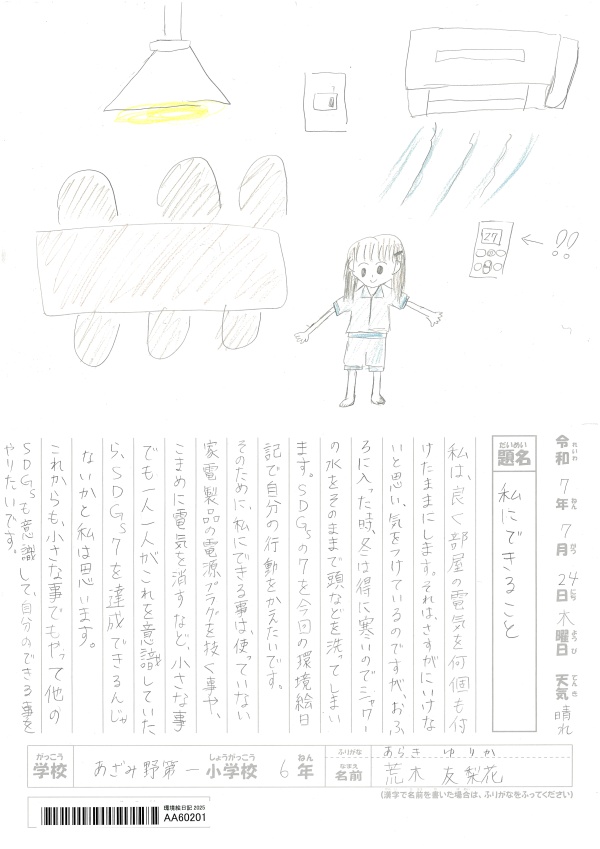 27
!!
令和7年7月24日木曜日 天気 晴れ
れいわ ねん がつ にち ようび てんき
だいめい
題名 私にできること
私は、良く部屋の電気を何個も付
けたままにします。それは、さすがにいけな
いと思い、気をつけているのですが、おふ
ろに入った時、冬は得に寒いのでシャワー
の水をそのままで頭などを洗ってしまい
ます。SDGsの7を今回の環境絵日
記で自分の行動をかえたいです。
そのために、私にできる事は、使っていない
家電製品の電源プラグを抜く事や、
こまめに電気を消すなど、小さな事
でも一人一人がこれを意識していた
ら、SDGs7を達成できるんじゃ
ないかと私は思います。
これからも、小さな事でもやって他の
SDGsも意識して、自分のできる事を
やりたいです。
がっこう しょうがっこう ねん
学校 あざみ野第一小学校 6年
ふりがな あらき ゆりか
なまえ
名前 荒木 友梨花
(漢字で名前を書いた場合は、ふりがなをふってください)
環境絵日記 2025
AA60201